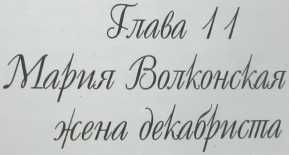 Глава 11
Мария Волконская
жена декабриста